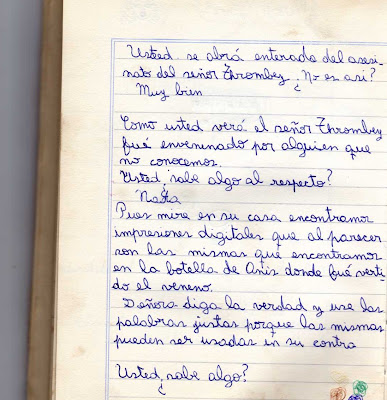 Usted se abrá enterado del asesi-
nato del señor Thrombey ¿No es asi?
Muy bien
Como usted verá el señor Thrombey
fué envenenado por alguien que
no conocemos.
Usted ¿sabe algo al respecto?
Nada
Pues mire en su casa encontramos
impresiones digitales que al parecer
son las mismas que encontramos
en la botella de Anis donde fué verti-
do el veneno.
Señora diga la verdad y use las
palabras justas porque las mismas
pueden ser usadas en su contra
Usted ¿sabe algo?